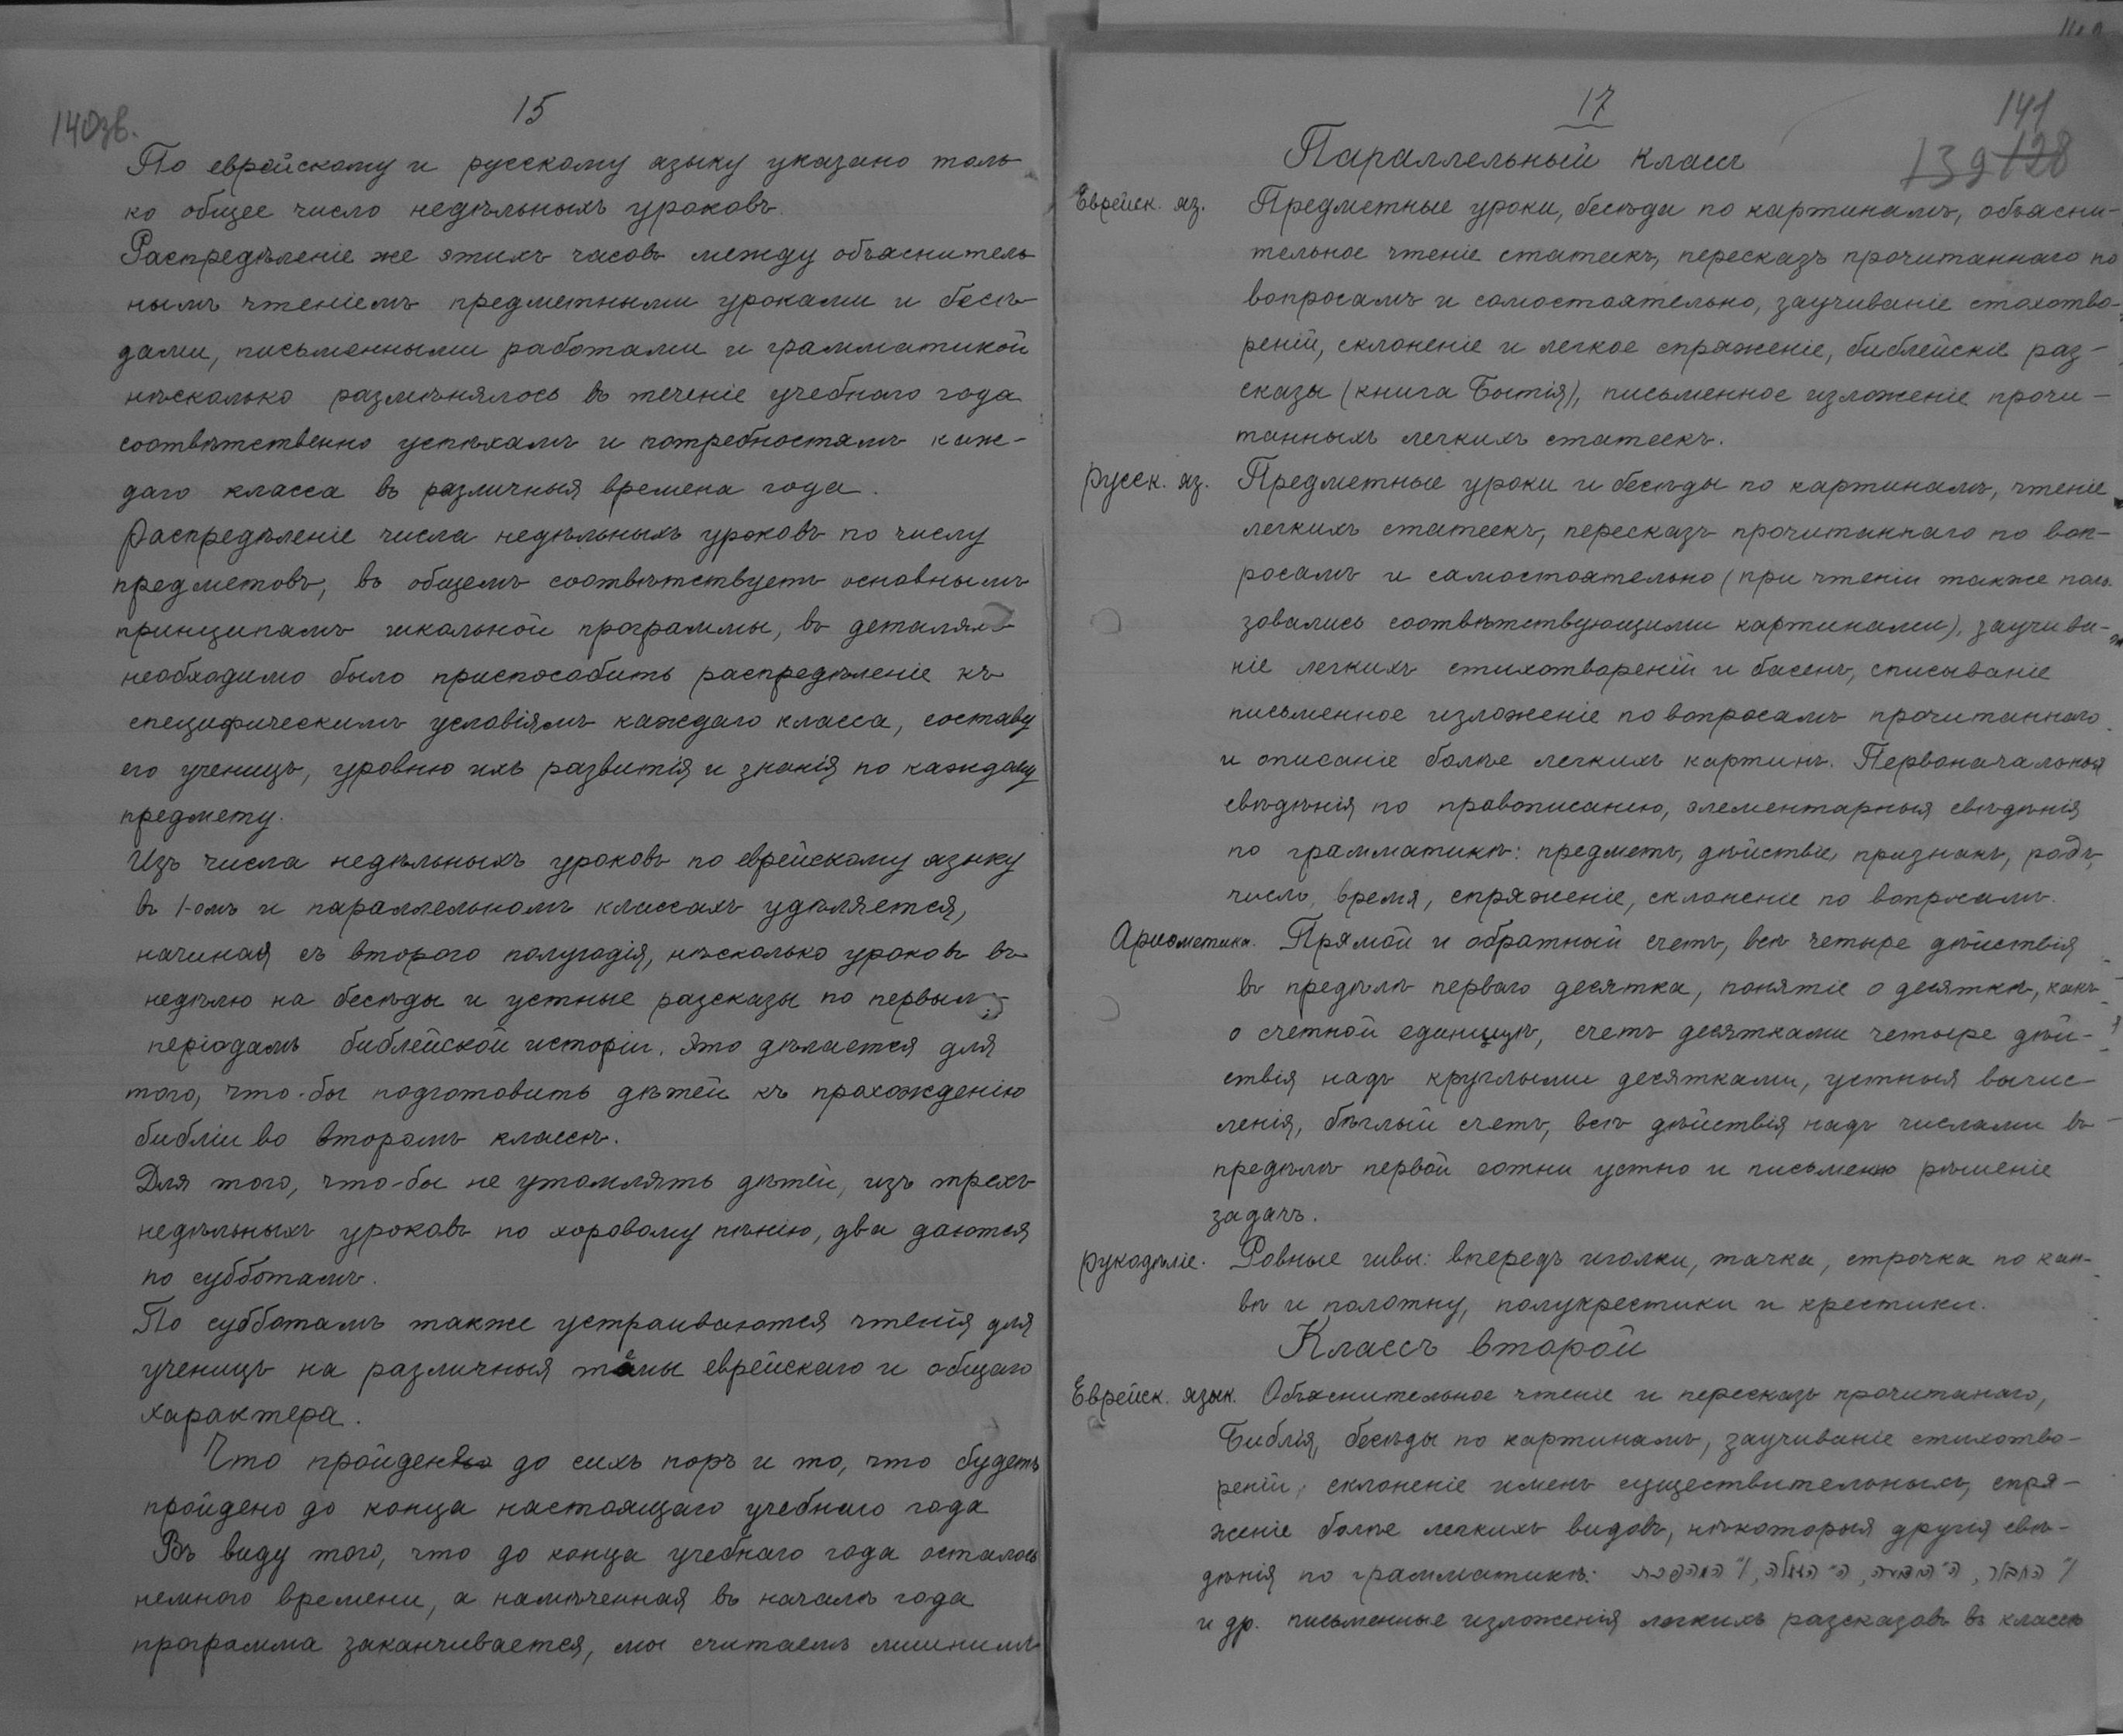 140зв.
15
По еврейскому и русскому языку указано толь-
ко общее число недѣльныхъ уроковъ.
Распредѣленіе же этихъ часовъ между объяснитель-
нымъ чтеніемъ предметными уроками и бесѣ-
дами, письменными работами и грамматикой
нѣсколько размѣнялось въ теченіе учебнаго года
соотвѣтственно успѣхамъ и потребностямъ каж-
даго класса въ различныя времена года.
Распредѣленіе числа недѣльныхъ уроковъ по числу
предметовъ, въ общемъ соотвѣтствуетъ основнымъ
принципамъ школьной программы, въ деталяхъ
необходимо было приспособить распредѣленіе къ
специфическимъ условіямъ каждаго класса, составу
его ученицъ, уровню ихъ развитія и знанія по каждому
предмету.
Изъ числа недѣльныхъ уроковъ по еврейскому языку
въ 1-омъ и параллельномъ классахъ удѣляется,
начиная съ второго полугодія, нѣсколько уроковъ въ
недѣлю на бесѣды и устные разсказы по первымъ
періодамъ библейской исторіи. Это дѣлается для
того, что-бы подготовить дѣтей къ прохожденію
библіи во второмъ классѣ.
Для того, что-бы не утомлять дѣтей, изъ трехъ
недѣльныхъ уроковъ по хоровому пѣнію, два даются
по субботамъ.
По субботамъ также устраиваются чтенія для
ученицъ на различныя темы еврейскаго и общаго
характера.
Что пройдено до сихъ поръ и то, что будетъ
пройдено до конца настоящаго учебнаго года
Въ виду того, что до конца учебнаго года осталось
немного времени, а намѣченная въ началѣ года
программа заканчивается, мы считаемъ лишнимъ
17
141
139 128
Параллельный классъ
Еврейск. яз. Предметные уроки, бесѣды по картинамъ, объясни-
тельное чтеніе статеекъ, пересказъ прочитаннаго по
вопросамъ и самостоятельно, заучиваніе стохотво-
реній, склоненіе и легкое спряженіе, библейскіе раз-
сказы (книга Бытія), письменное изложеніе прочи-
танныхъ легкихъ статеекъ.
русск. яз. Предметные уроки и бесѣды по картинамъ, чтеніе
легкихъ статеекъ, пересказъ прочитаннаго по воп-
росамъ и самостоятельно (при чтеніи также поль-
зовались соотвѣтствующими картинами), заучива-
ніе легкихъ стихотвореній и басенъ, списываніе
письменное изложеніе по вопросамъ прочитаннаго
и описаніе болѣе легкихъ картинъ. Первоначальныя
свѣдѣнія по правописанію, элементарныя свѣдѣнія
по грамматикѣ: предметъ, дѣйствіе, признакъ, родъ,
число, время, спряженіе, склоненіе по вопросамъ.
Ариѳметика. Прямой и обратный счетъ, всѣ четыре дѣйствія
въ предѣлѣ перваго десятка, понятіе о десяткѣ, какъ
о счетной единицѣ, счетъ десятками четыре дѣй-
ствія надъ круглыми десятками, устныя вычис-
ленія, бѣглый счетъ, всѣ дѣйствія надъ числами въ
предѣлѣ первой сотни устно и письменно рѣшеніе
задачъ.
рукодѣліе. Ровные швы: впередъ иголки, тачка, строчка по кан-
вѣ и полотну, полукрестики и крестики.
Классъ второй
Еврейск. язык. Объяснительное чтеніе и пересказъ прочитанаго,
Библія, бесѣды по картинамъ, заучиваніе стихотво-
реній, склоненіе именъ существительныхъ, спря-
женіе болѣе легкихъ видовъ, нѣкоторыя другія свѣ-
дѣнія по грамматикѣ:
и др. письменные изложенія легкихъ разсказовъ въ классѣ